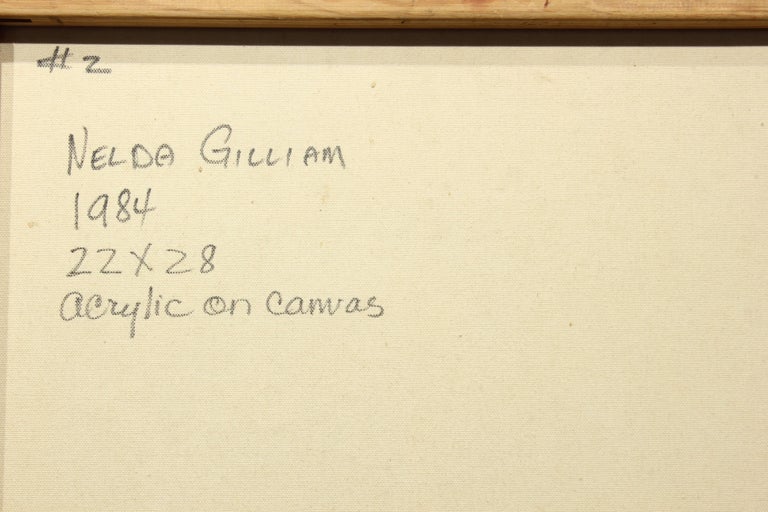 #2
NELDA GILLIAM
1984
22X28
acrylic on canvas